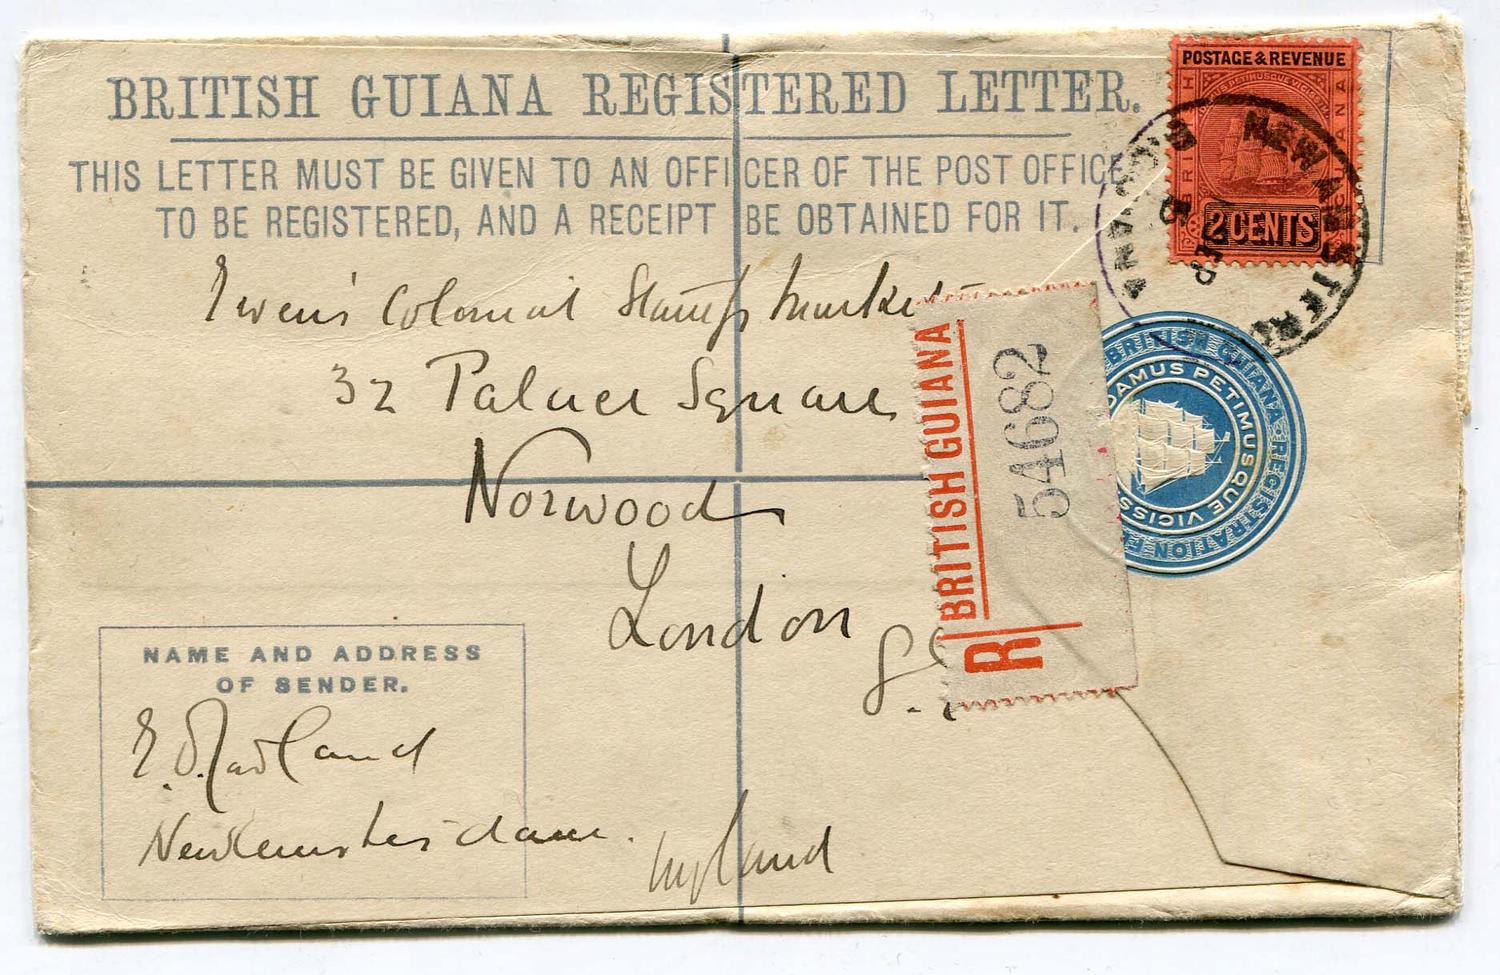 BRITISH GUIANA REGISTERED LETTER.
THIS LETTER MUST BE GIVEN TO AN OFFICER OF THE POST OFFICE
TO BE REGISTERED, AND A RECEIPT BE OBTAINED FOR IT.
POSTAGE & REVENUE
DAMUS PETIMUSQUE VICISSIM
BRITISH GUIANA
2 CENTS
NEW AMSTERD
Ewen's Colonial Stamp Market
32 Palace Square
Norwood
London
S.E
England
BRITISH GUIANA
R
54682
BRITISH GUIANA REGISTRATION
DAMUS PETIMUSQUE VICISS
NAME AND ADDRESS
OF SENDER.
New Amsterdam.